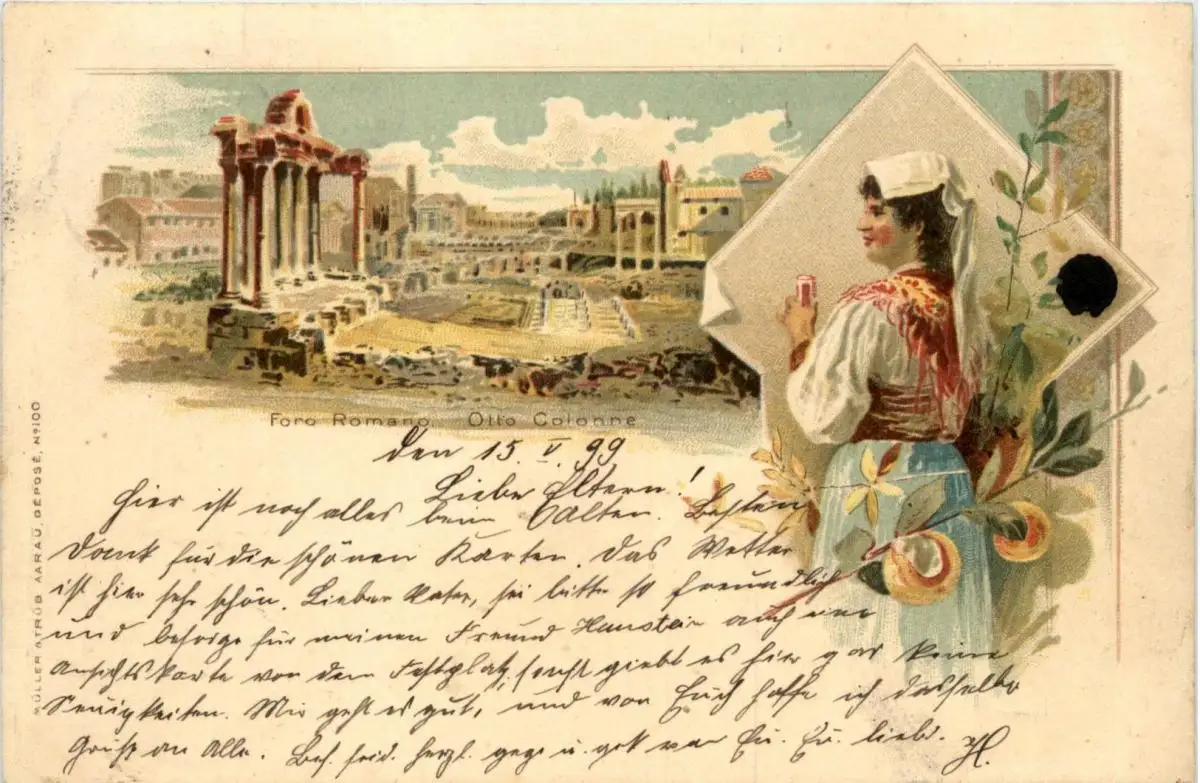 Foro Romano. Otto Colonne
den 15. V. 99
Liebe Eltern!
Hier ist noch alles beim Alten. Besten
Dank für die schönen Karten. Das Wetter
ist hier sehr schön. Lieber Vater, sei bitte so freundlich
und besorge für meinen Freund Haustein auch eine
Ansichtskarte von dem Festplatz, sonst giebt es hier gar keine
Neuigkeiten. Mir geht es gut, und von Euch hoffe ich dasselbe
Gruß an Alle. seid herzl. gegr. u. gek. von Eu. Eu. lieb. H.
MÜLLER & TRÜB AARAU, DÉPOSÉ, No 100